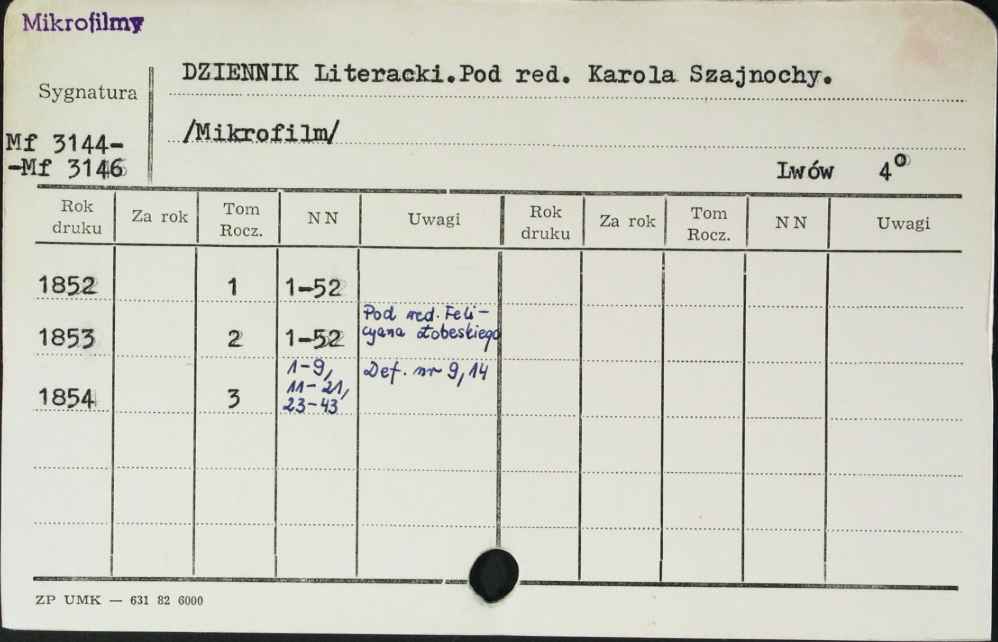 Mikrofilmy
DZIENNIK Literacki.Pod red. Karola Szajnochy.
Sygnatura
/Mikrofilm/
Mf 3144-
-Mf 3146
Lwów 4°
Rok druku Za rok Tom Rocz. NN Uwagi Rok druku Za rok Tom Rocz. NN Uwagi
1852 1 1-52
Pod red. Feli-
1853 2 1-52 cyana Łobeskiego
1-9, Def. nr 9,14
11-21,
1854 3 23-43
ZP UMK — 631 82 6000